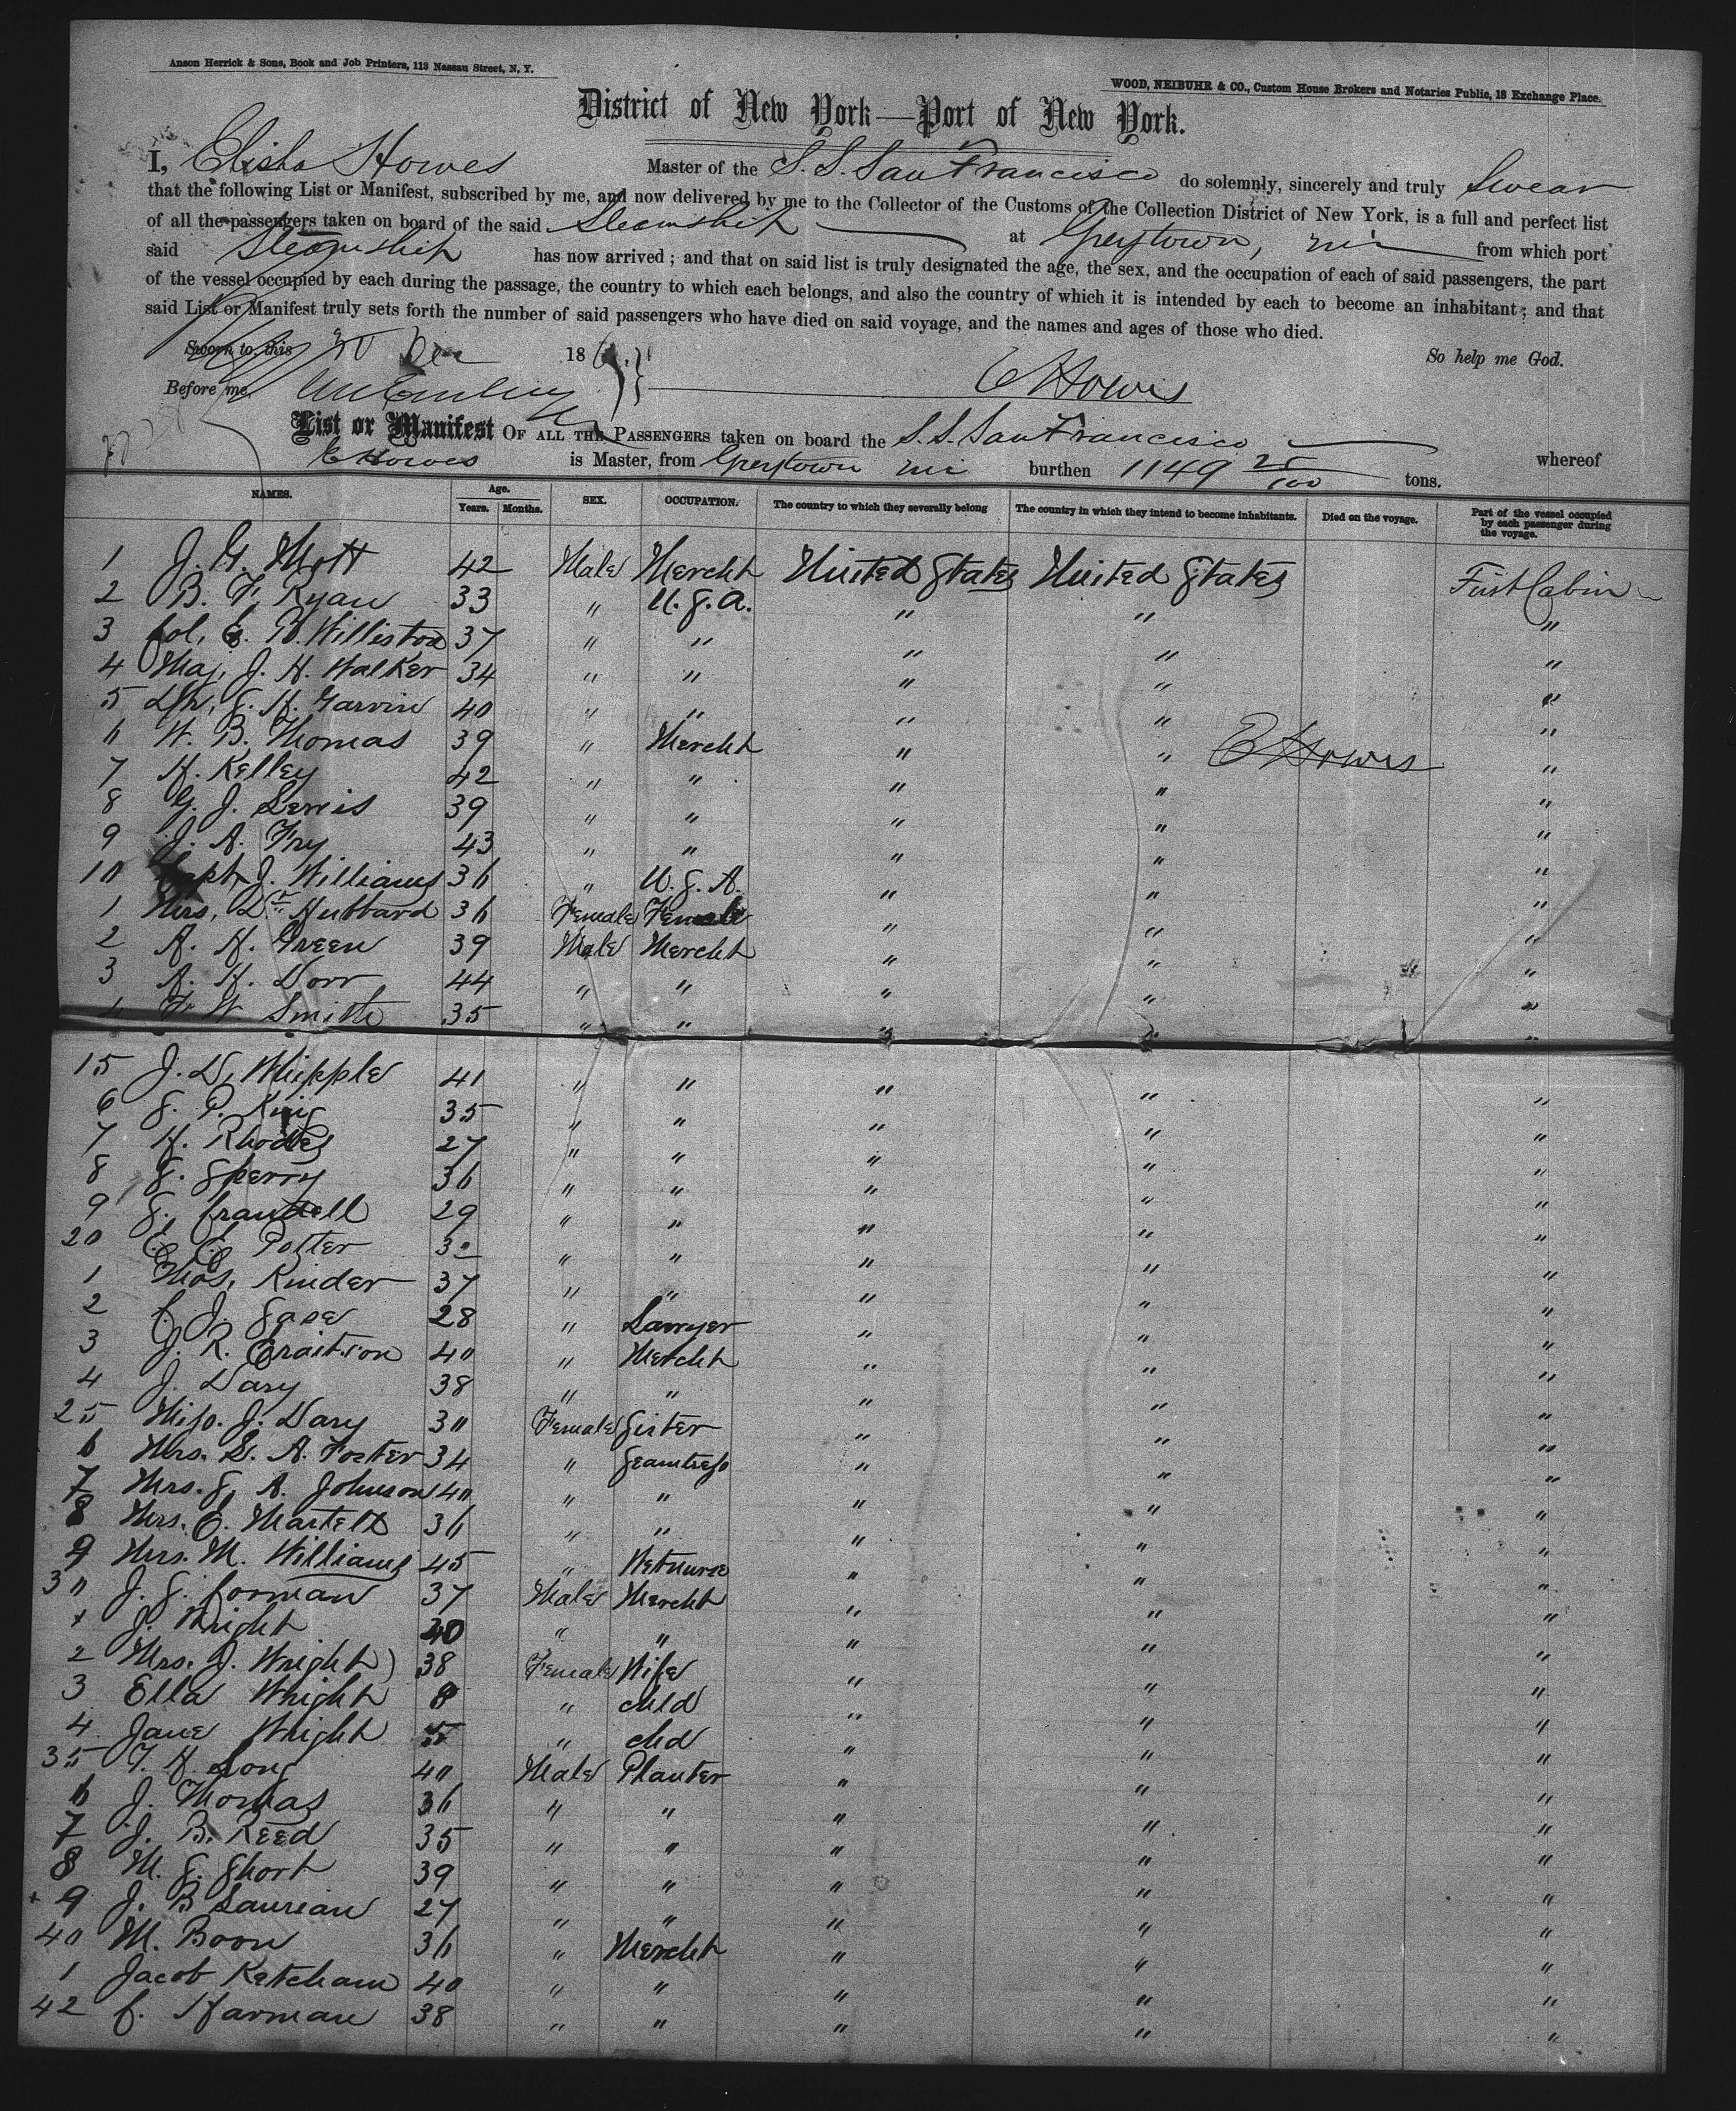 Anson Herrick & Sons, Book and Job Printers, 113 Nassau Street, N. Y.
WOOD, NEIBUHR & CO., Custom House Brokers and Notaries Public, 18 Exchange Place.
District of New York—Port of New York.
I, Elisha Howes Master of the S. S. San Francisco do solemnly, sincerely and truly Swear
that the following List or Manifest, subscribed by me, and now delivered by me to the Collector of the Customs of the Collection District of New York, is a full and perfect list
of all the passengers taken on board of the said Steamship at Greytown, Nic from which port
said Steamship has now arrived; and that on said list is truly designated the age, the sex, and the occupation of each of said passengers, the part
of the vessel occupied by each during the passage, the country to which each belongs, and also the country of which it is intended by each to become an inhabitant; and that
said List or Manifest truly sets forth the number of said passengers who have died on said voyage, and the names and ages of those who died.
Sworn to, this 20 Dec 186 So help me God.
Before me, E Howes
List or Manifest OF ALL THE PASSENGERS taken on board the S. S. San Francisco whereof
E Howes is Master, from Greytown Nic burthen 1149 25/100 tons.
NAMES. Age. Years. Months. SEX. OCCUPATION. The country to which they severally belong The country in which they intend to become inhabitants. Died on the voyage. Part of the vessel occupied by each passenger during the voyage.
1 J. G. Mott 42 Male Mercht United States United States First Cabin
2 B. F. Ryan 33 " U. S. A. " " "
3 Col. E. B. Williston 37 " " " " "
4 Maj. J. H. Walker 34 " " " " "
5 S. H. Garvin 40 " " " " "
6 W. B. Thomas 39 " Mercht " " E Howes "
7 H. Kelley 42 " " " " "
8 G. J. Lewis 39 " " " " "
9 J. A. Fry 43 " " " " "
10 Capt J. Williams 36 " U. S. A. " " "
1 Mrs. Lt Hubbard 36 Female Female " " "
2 A. H. Green 39 Male Mercht " " "
3 A. H. Dorr 44 " " " " "
4 F W Smith 35 " " " " "
15 J. D. Whipple 41 " " " " "
6 S. P. King 35 " " " " "
7 H. Rhodes 27 " " " " "
8 S. Sperry 36 " " " " "
9 S. Crandell 29 " " " " "
20 E. C. Potter 30 " " " " "
1 Thos. Kinder 37 " " " " "
2 C. J. Gase 28 " Lawyer " " "
3 J. R. 40 " Mercht " " "
4 J. Dary 38 " " " " "
25 Miss. J. Dary 30 Female Sister " " "
6 Mrs. S. A. Foster 34 " Seamtress " " "
7 Mrs. S. A. Johnson 40 " " " " "
8 Mrs. C. Martell 36 " " " " "
9 Mrs. M. Williams 45 " Wetnurse " " "
30 J. S. Corman 37 Male Mercht " " "
1 J. Wright 40 " " " " "
2 Mrs. J. Wright 38 Female Wife " " "
3 Ella Wright 8 " child " " "
4 Jane Wright 5 " chd " " "
35 T. H. Long 40 Male Planter " " "
6 J. Thomas 36 " " " " "
7 J. B. Reed 35 " " " " "
8 M. S. Short 39 " " " " "
9 J. B Laurean 27 " " " " "
40 M. Boon 36 " Mercht " " "
1 Jacob Ketcham 40 " " " " "
42 C. Harman 38 " " " " "